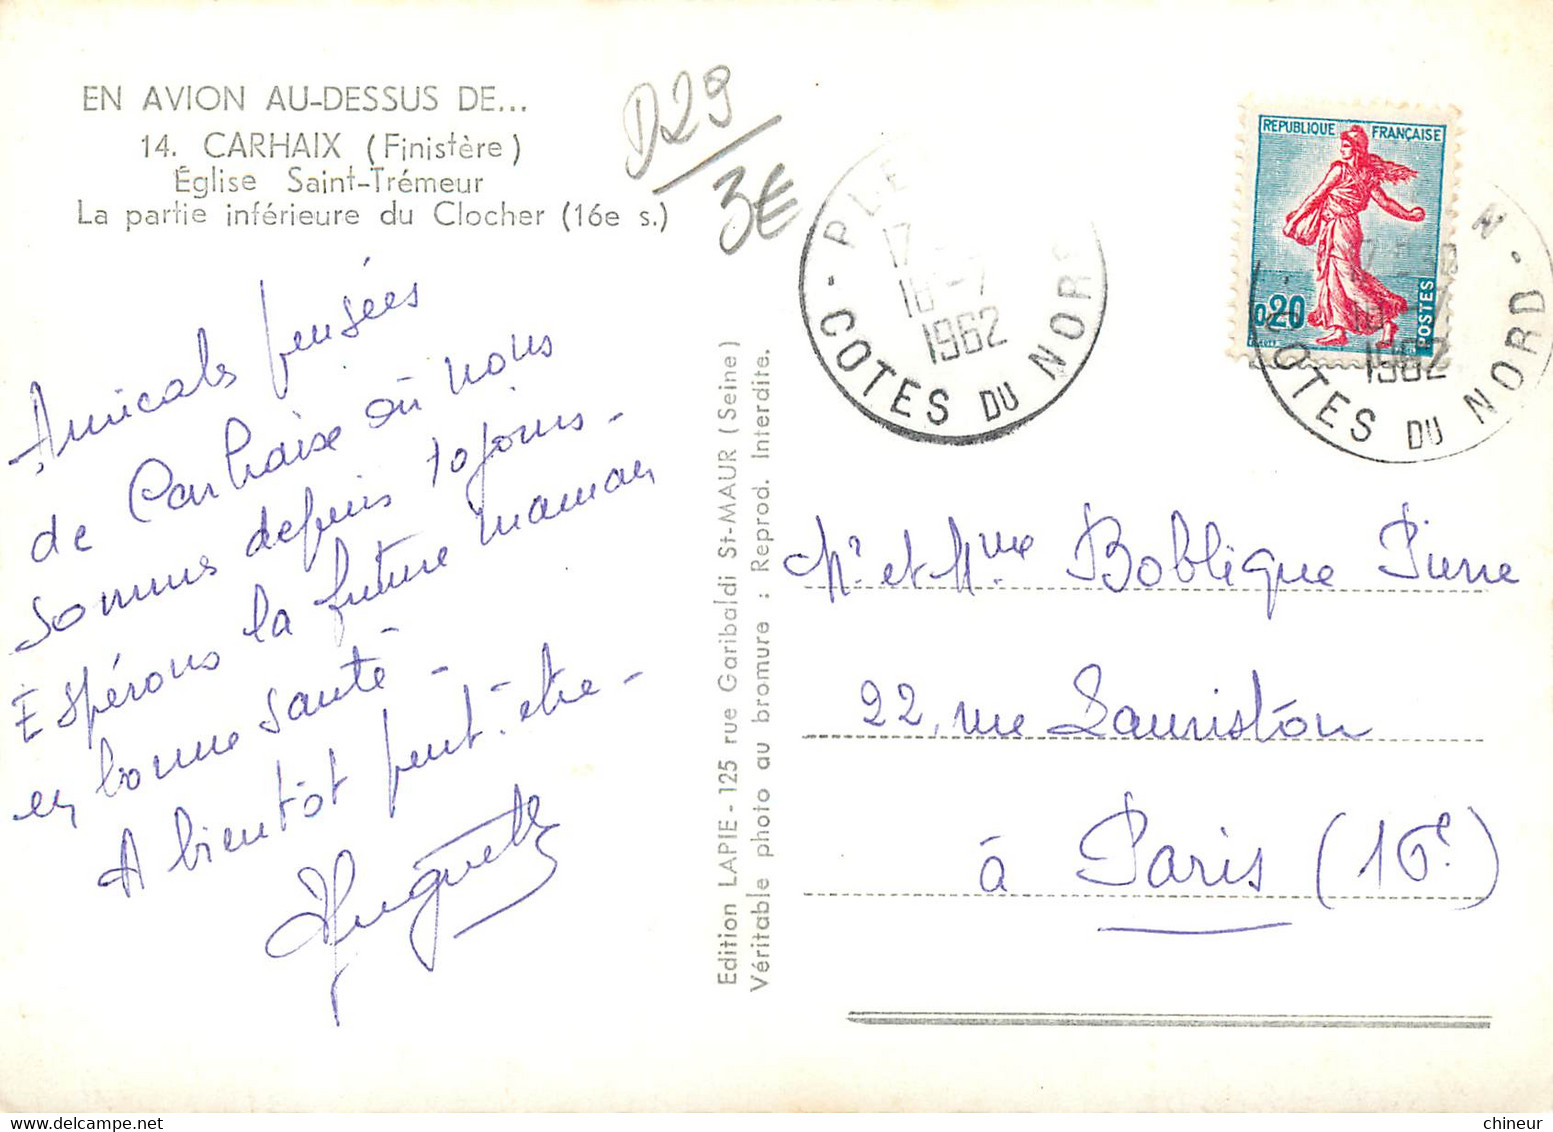 EN AVION AU-DESSUS DE...
14. CARHAIX (Finistère)
Église Saint-Trémeur
La partie inférieure du Clocher (16e s.)
D29
3€
Amicales pensées
de Carhaise où nous
sommes depuis 10 jours -
Espérons la future maman
en bonne santé -
A bientôt peut-être -
Huguette
Edition LAPIE - 125 rue Garibaldi St-MAUR (Seine)
Véritable photo au bromure : Reprod. Interdite.
PLE
17
16-7
1962
COTES DU NORD
REPUBLIQUE FRANÇAISE
0,20
POSTES
N
1962
COTES DU NORD
Mr et Mme Boblique Pierre
22, rue Lauriston
à Paris (16e)
chineur